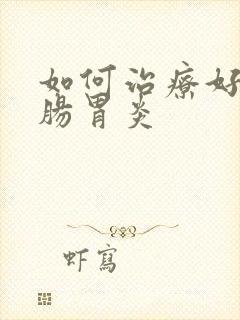 如何治療好
腸胃炎
虾寫